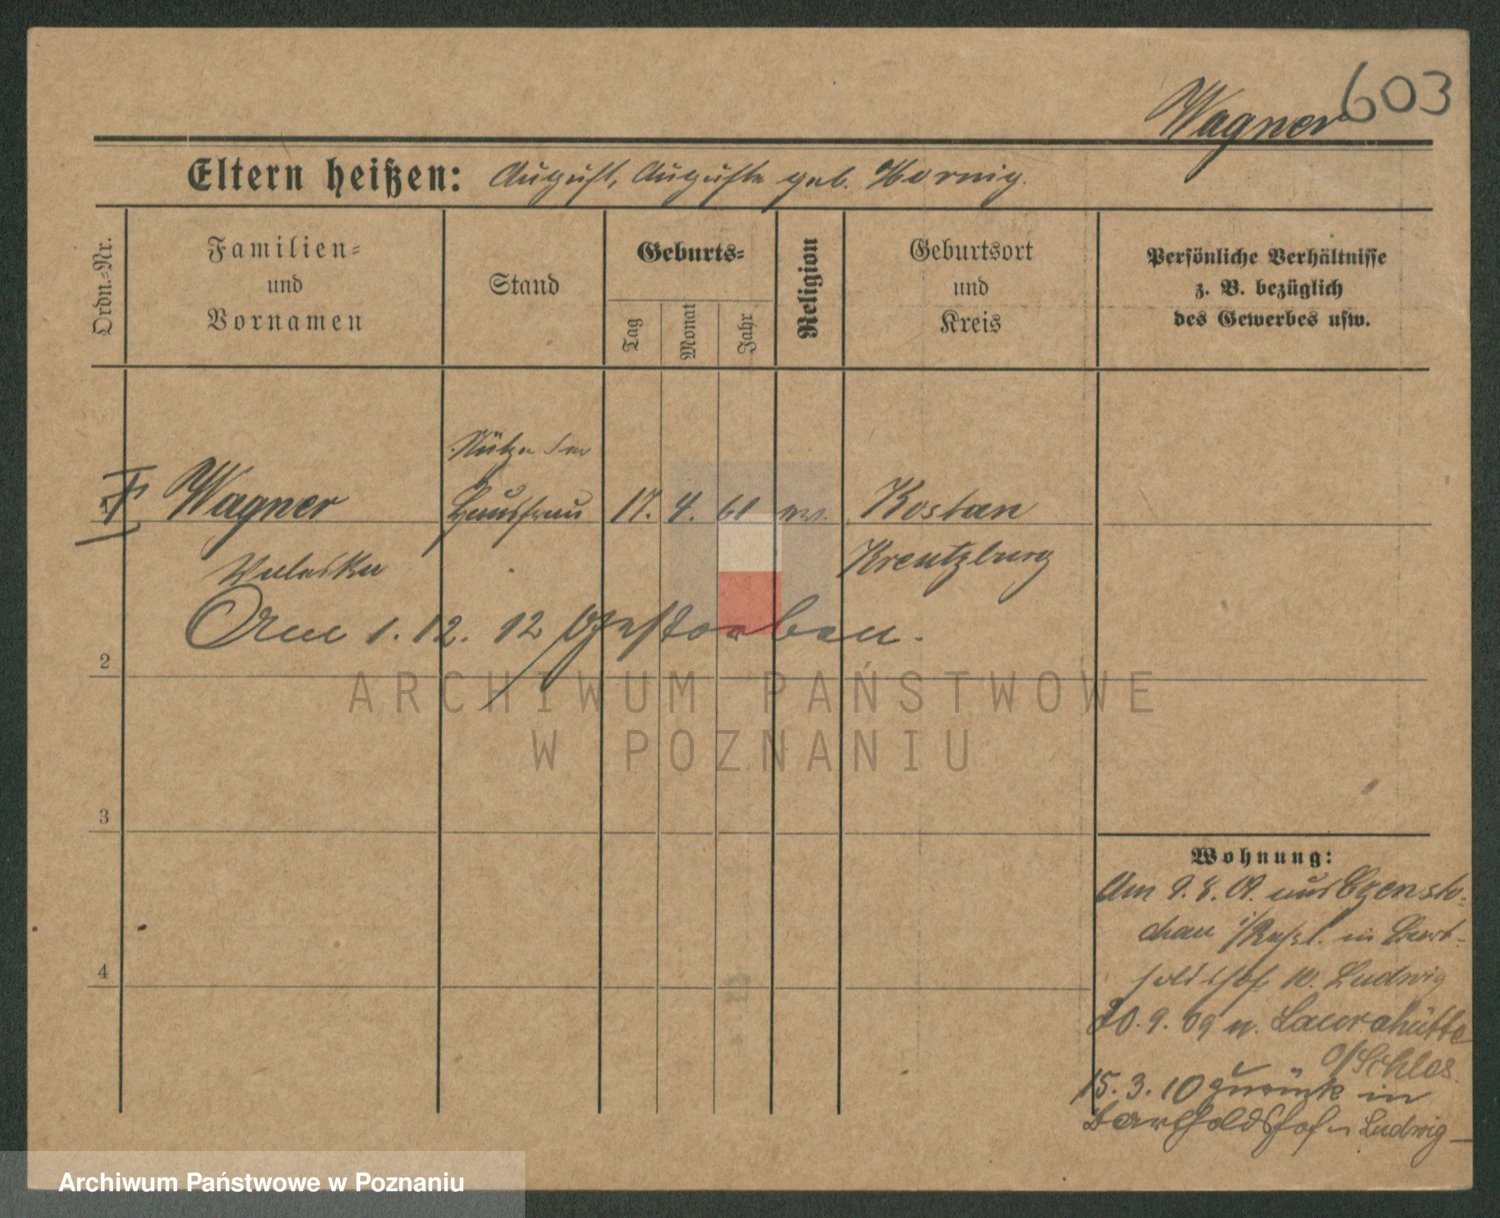 603
Wagner
Eltern heißen: August, Auguste geb. Hornig.
Ordn.-Nr.
Familien-
und
Vornamen
Stand
Geburts-
Tag
Monat
Jahr
Religion
Geburtsort
und
Kreis
Persönliche Verhältnisse
z. B. bezüglich
des Gewerbes usw.
Stütze der
Wagner
Hausfrau
17. 4. 61 ev.
Kostan
Valeska
Kreutzburg
Am 1. 12. 12 gestorben.
2
ARCHIWUM PAŃSTWOWE
W POZNANIU
3
4
Wohnung:
Am 9. 8. 09. aus Czensto-
chau i/Russl. in Bert-
holdshof b. Ludwig
30. 9. 09 n. Laurahütte
O/Schles.
15. 3. 10 zurück in
Bartholdshof Ludwig
Archiwum Państwowe w Poznaniu